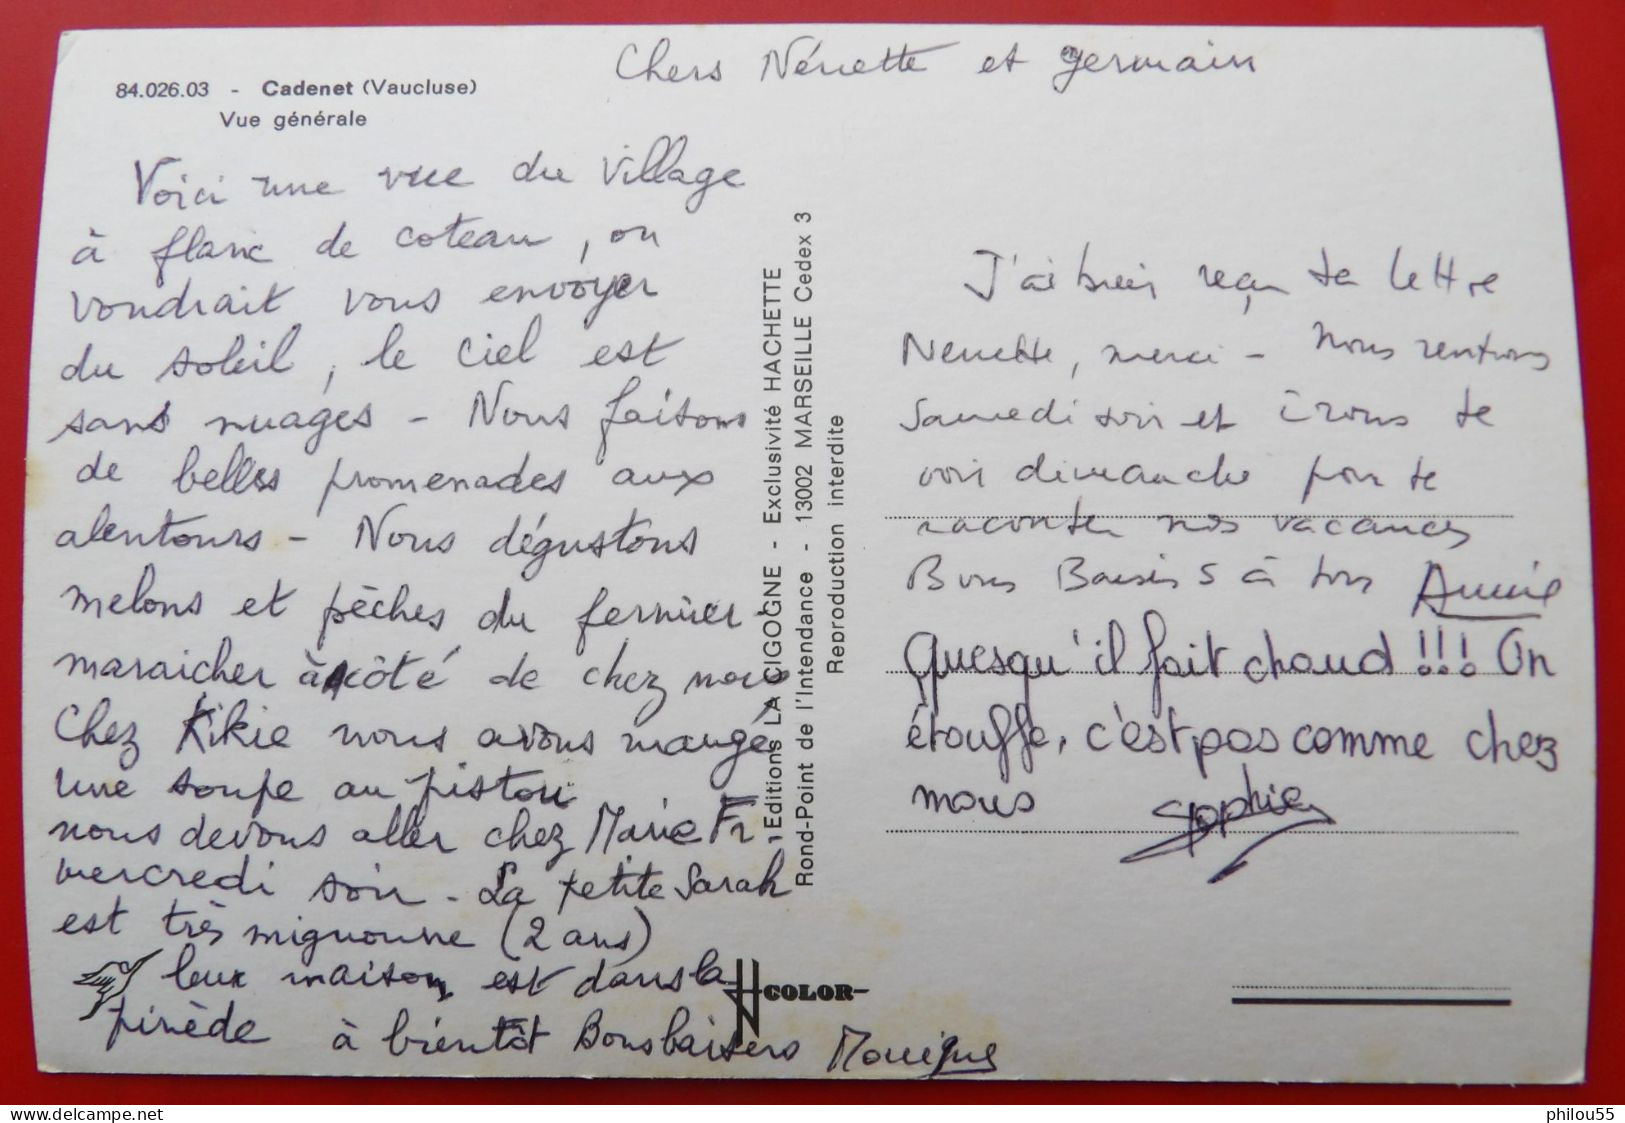 84.026.03 - Cadenet (Vaucluse)
Vue générale
Chers Nénette et Germain
Voici une vue du village
à flanc de coteau, on
voudrait vous envoyer
du soleil, le ciel est
sans nuages - Nous faisons
de belles promenades aux
alentours - Nous dégustons
melons et pêches du fermier -
maraicher à côté de chez nous
Chez Kikie nous avons mangé
une soupe au pistou
nous devons aller chez Marie Fr.
mercredi soir - La petite Sarah
est très mignonne (2 ans)
leur maison est dans la
pinède à bientôt Bons baisers Monique
Editions LA CIGOGNE - Exclusivité HACHETTE
Rond-Point de l'Intendance - 13002 MARSEILLE Cedex 3
Reproduction interdite
COLOR
J'ai bien reçu ta lettre
Nenette, merci - nous rentrons
Samedi soir et irons te
voir dimanche pour te
raconter nos vacances
Bons Baisers à tous Annie
Quesqu'il fait chaud !!! On
étouffe, c'est pas comme chez
nous Sophie
philou55
delcampe.net